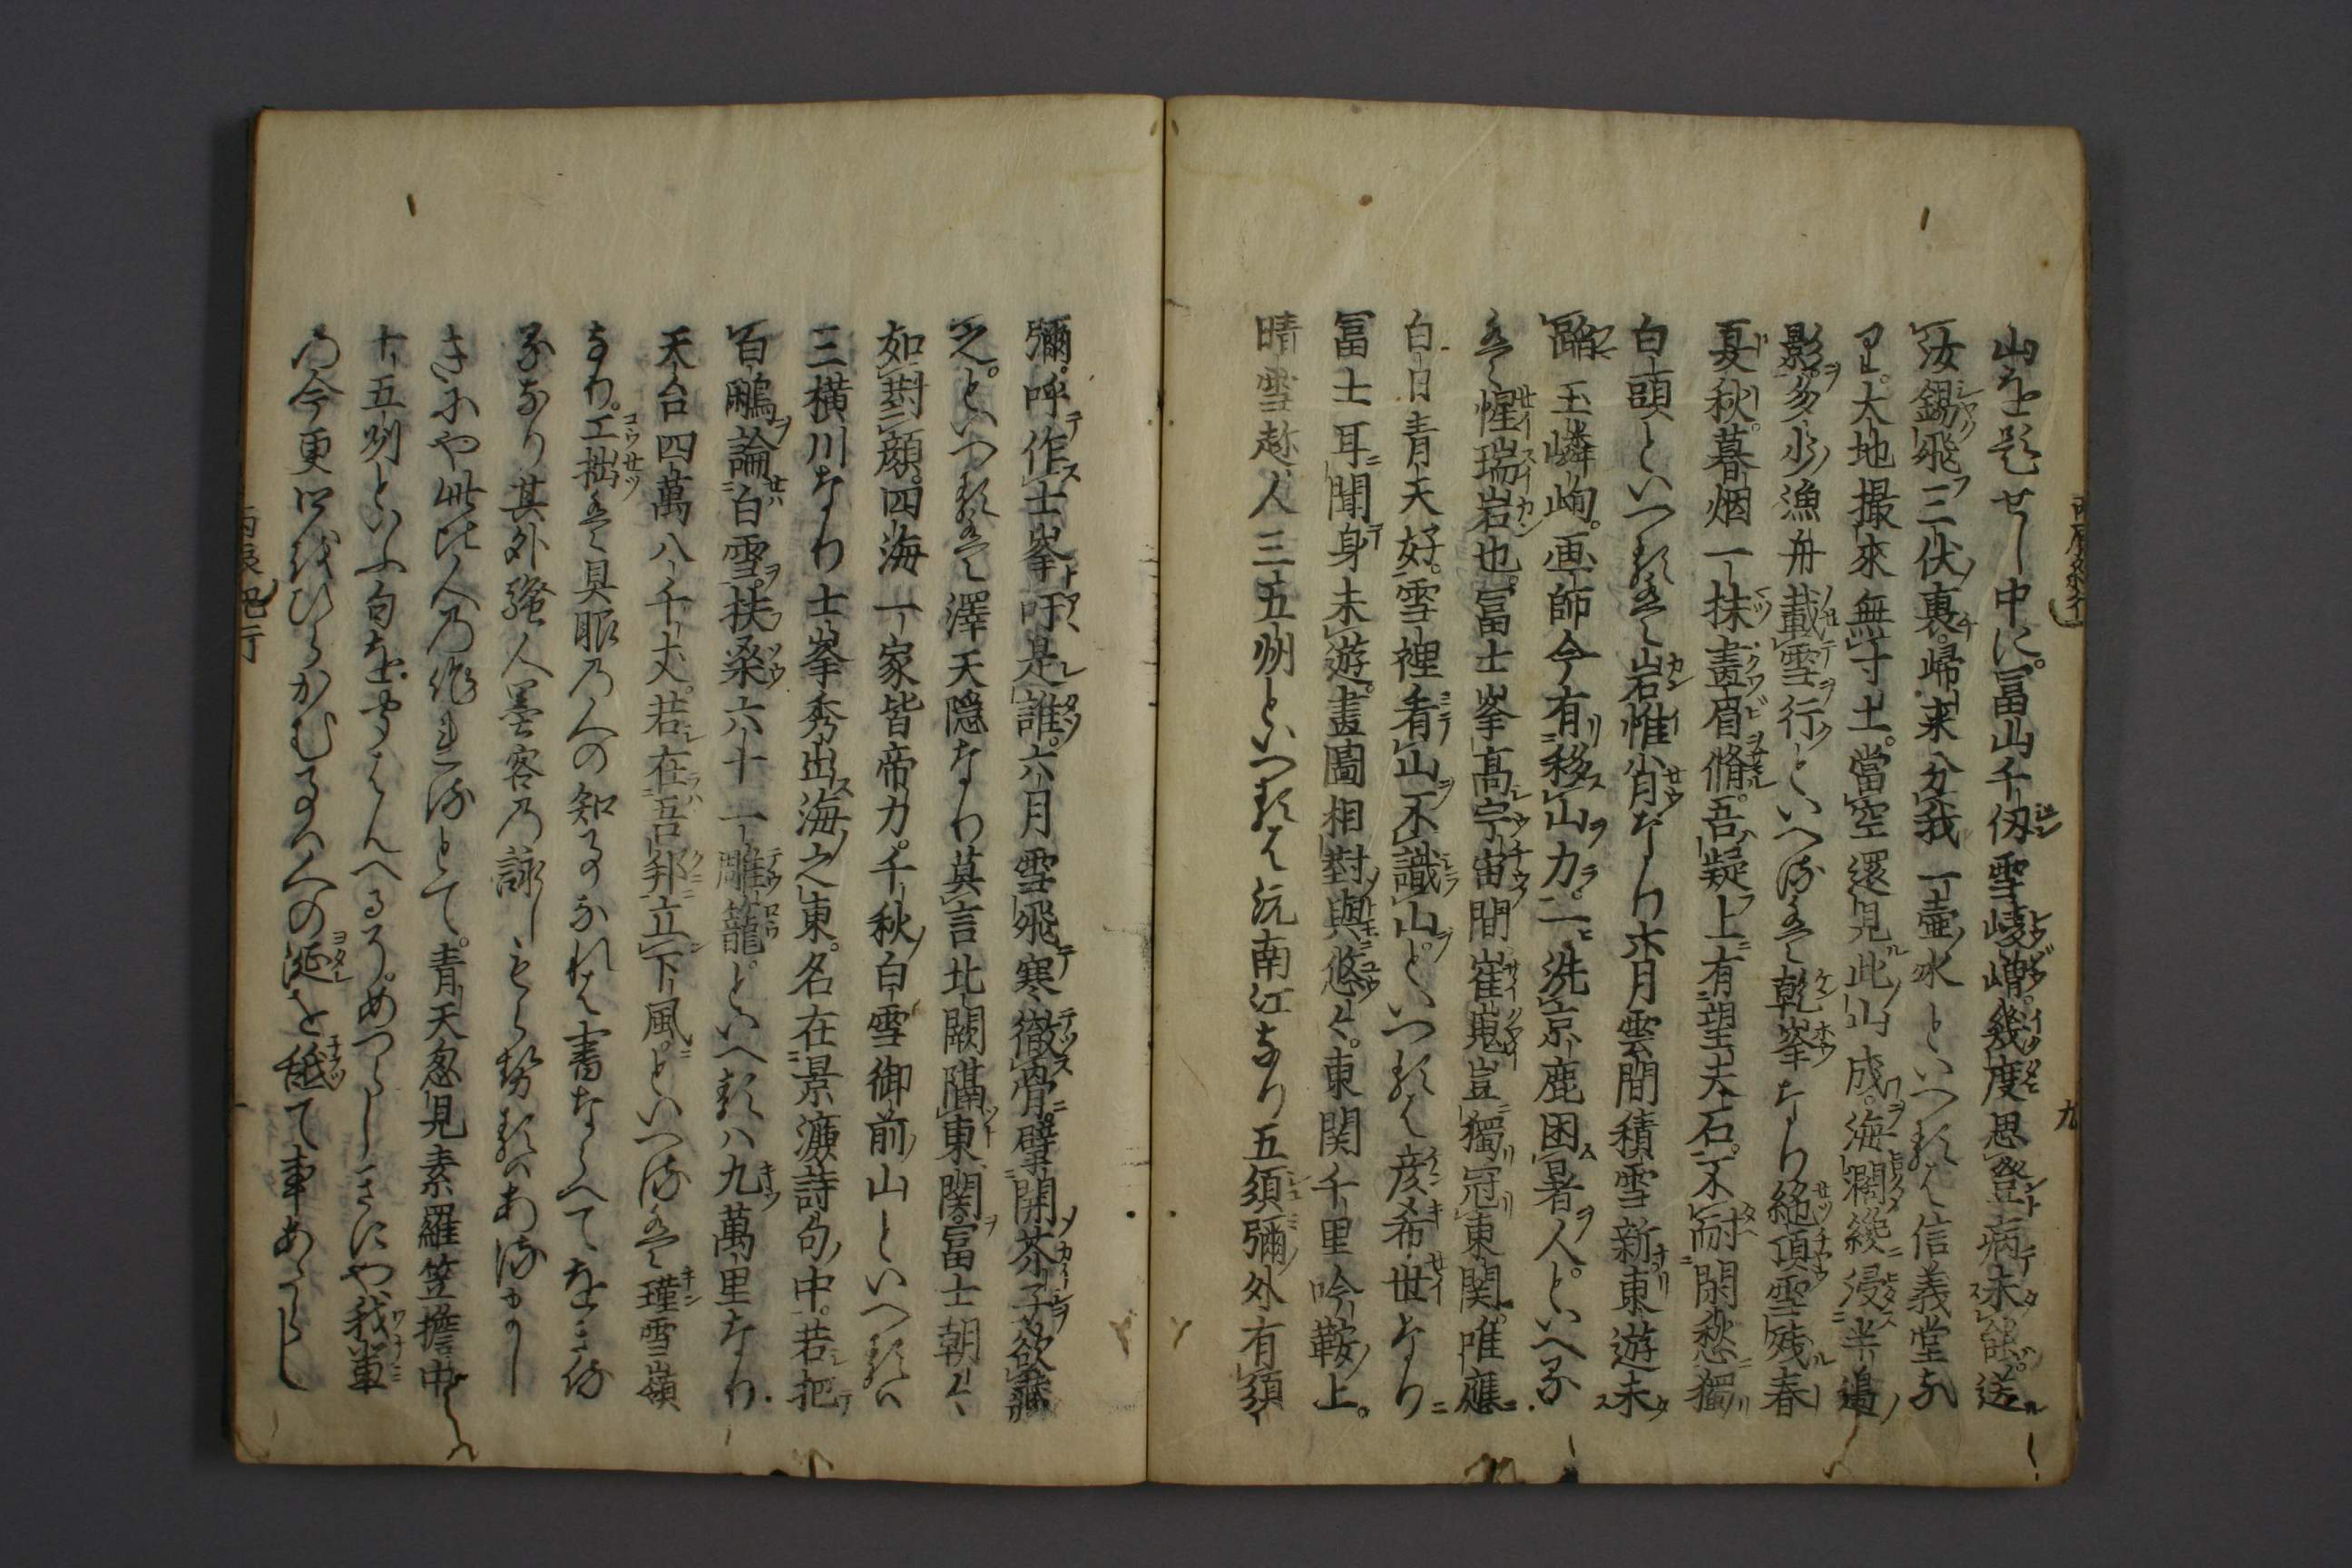 山を題せし中に。冨山千仭雪崚嶒。幾度思登病未能。送
汝錫飛三伏裏。歸来分我一壷氷といつるは信義堂な
り。大地撮來無寸土。當空還見此山成。海濶纔浸半邉
影。多少漁舟載雪行といへるは乾峯なり絶頂雪残春
夏秋。暮烟一抹畫眉脩。吾疑上有望夫石。不耐閑愁獨
白頭といつるは岩惟肖なり六月雲間積雪新東遊未
踏玉嶙峋。画師今有移山力。一洗京鹿困暑人。といへる
は惺瑞岩也。冨士峯高宇宙間崔嵬豈獨冠東関。唯應
白日青天好。雪裡看山不識山。といつるは彦希世なり
冨士耳聞身未遊。畫圖相對與悠々。東関千里吟鞍上。
晴雪趂人三五州といつるは沅南江なり五須彌外有須
彌。呼作士峯吁是誰。六月雪飛寒徹骨。擘開芥子欲藏
之。といつるは澤天隠なり莫言北闕隔東関。冨士朝々
如對顔。四海一家皆帝力。千秋白雪御前山といへるハ
三横川なり士峯秀出海之東。名在景濂詩句中。若把
百鵬論白雪。扶桑六十一雕籠。といへるハ九萬里なり
天台四萬八千丈。若在吾邦立下風。といつるは瑾雪嶺
なり。工拙は具眼乃人の知る事なれは書ならへてをき侍
るなり其外騒人墨客乃詠しもらし侍るハあるましき
さにや此比人乃作れるとて。青天忽見素羅笠擔中
十五州といふ句を。めつらしきにや我輩
乃今更口をひらかむ事ハ人の涎を舐て事あたらし
九